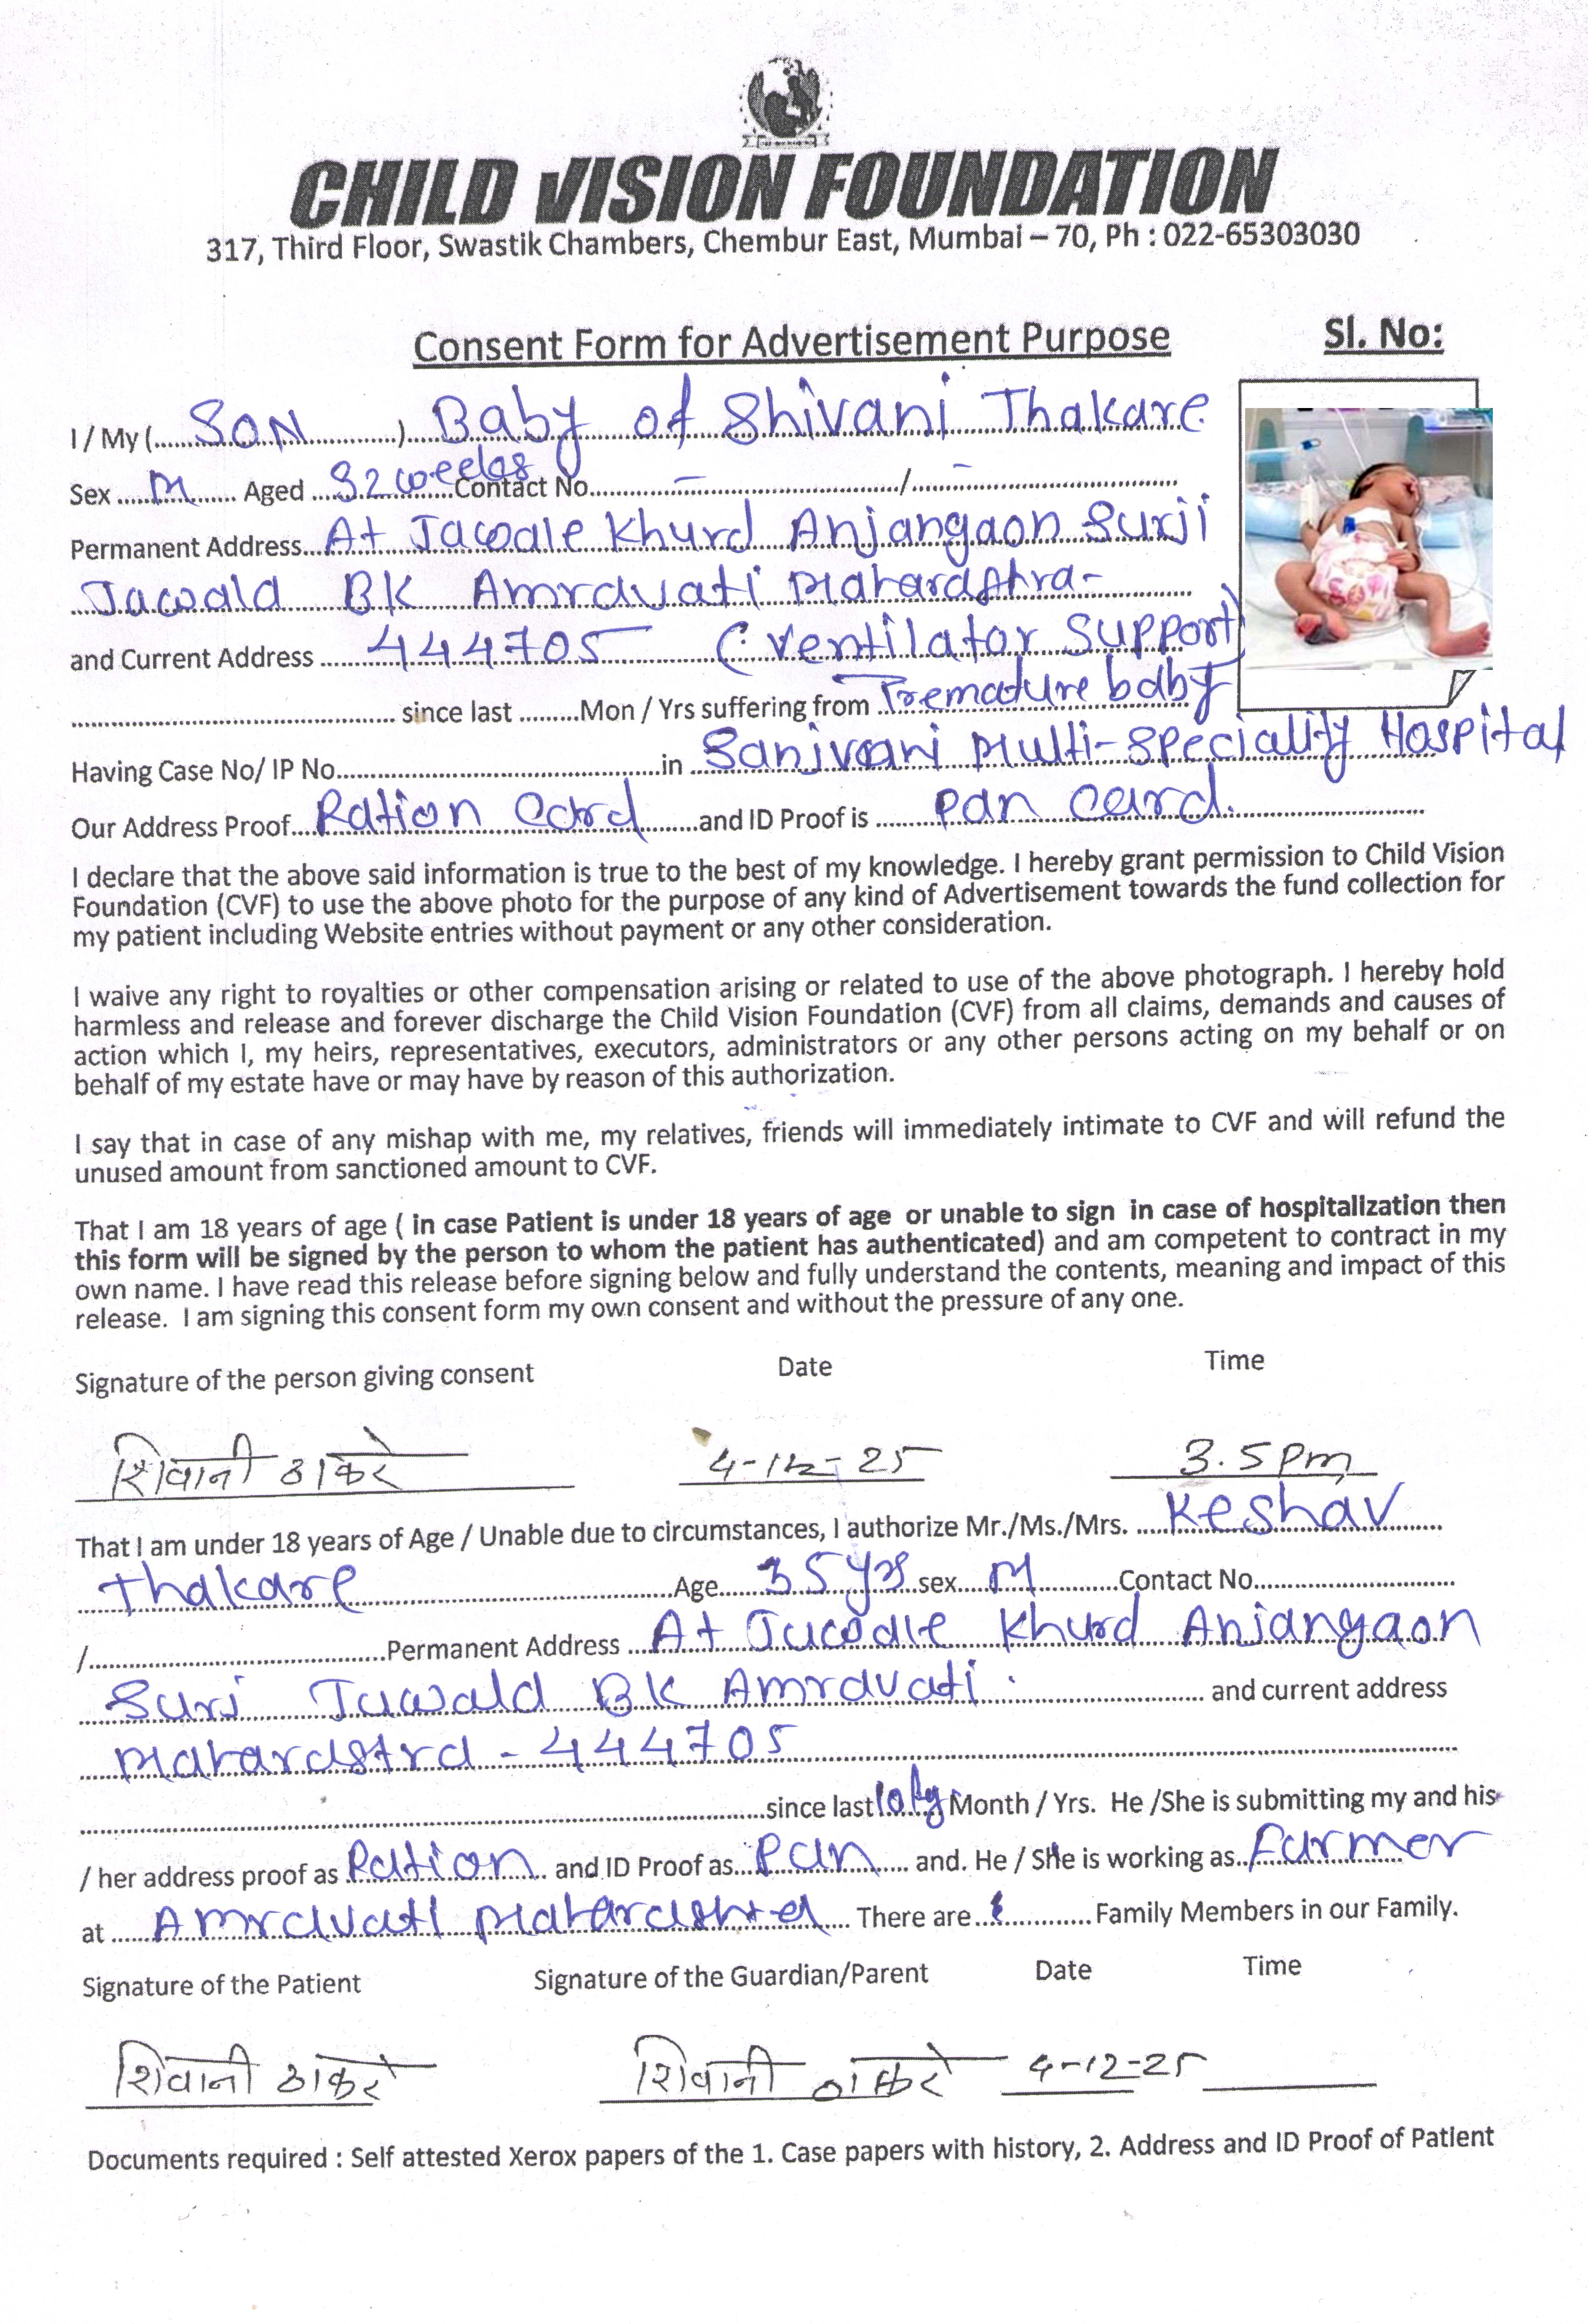 CHILD VISION FOUNDATION
317, Third Floor, Swastik Chambers, Chembur East, Mumbai – 70, Ph : 022-65303030
Consent Form for Advertisement Purpose
Sl. No:
I / My (......SON......)....Baby of Shivani Thakare
Sex ....M...... Aged ...32 weeks...Contact No....–..../...–....
Permanent Address...At Jawale Khurd Anjangaon Surji
Jawald BK Amravati Maharashtra-
and Current Address ....444705 (ventilator support)
.... since last .........Mon / Yrs suffering from ..Premature baby
Having Case No/ IP No.....in ..Sanjvani Multi-Speciality Hospital
Our Address Proof...Ration Card......and ID Proof is ......Pan card.....
I declare that the above said information is true to the best of my knowledge. I hereby grant permission to Child Vision
Foundation (CVF) to use the above photo for the purpose of any kind of Advertisement towards the fund collection for
my patient including Website entries without payment or any other consideration.
I waive any right to royalties or other compensation arising or related to use of the above photograph. I hereby hold
harmless and release and forever discharge the Child Vision Foundation (CVF) from all claims, demands and causes of
action which I, my heirs, representatives, executors, administrators or any other persons acting on my behalf or on
behalf of my estate have or may have by reason of this authorization.
I say that in case of any mishap with me, my relatives, friends will immediately intimate to CVF and will refund the
unused amount from sanctioned amount to CVF.
That I am 18 years of age ( in case Patient is under 18 years of age or unable to sign in case of hospitalization then
this form will be signed by the person to whom the patient has authenticated) and am competent to contract in my
own name. I have read this release before signing below and fully understand the contents, meaning and impact of this
release. I am signing this consent form my own consent and without the pressure of any one.
Signature of the person giving consent Date Time
शिवानी ठाकरे 4-12-25 3.5 Pm
That I am under 18 years of Age / Unable due to circumstances, I authorize Mr./Ms./Mrs. .....Keshav
Thakare......Age....35 yrs sex...M......Contact No.....
/.....Permanent Address ...At Jawale Khurd Anjangaon
Surji Jawald BK Amravati..... and current address
Maharastra - 444705
.....since last .... Month / Yrs. He /She is submitting my and his
/ her address proof as Ration.. and ID Proof as...Pan.... and. He / She is working as..Farmer
at ......Amravati Maharashtra.... There are ....... Family Members in our Family.
Signature of the Patient Signature of the Guardian/Parent Date Time
शिवानी ठाकरे शिवानी ठाकरे 4-12-25
Documents required : Self attested Xerox papers of the 1. Case papers with history, 2. Address and ID Proof of Patient